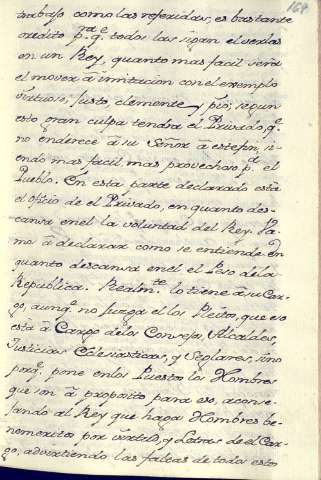 164
trabajo como las referidas, es bastante
credito pa. q. todos las sigan el verlas
en un Rey, quanto mas facil sera
el mover à imitacion con el exemplo
virtuoso, Justo, clemente, y pio; segun
esto gran culpa tendra el Privado, q.e
no enderece à su Señor à este fin, si-
endo mas facil, mas provechoso pa. el
Pueblo. En esta parte declarado està
el oficio de el Privado, en quanto des-
cansa en el la voluntad del Rey. Va-
mo à declarar como se entiende en
quanto descansa en el el Peso de la
Republica. Realm.te lo tiene à su Car-
go, aunq.e no juzga el los Pleitos, que eso
està à Cargo de los Consejos, Alcaldes,
Justicias Eclesiasticas, y Seglares, sino
porq.e pone en los Puestos los Hombres
que son à proposito para eso, aconse-
jando al Rey que haga Hombres be-
nemeritos por virtud, y Letras de el Car-
go, advirtiendo las faltas de todos esto